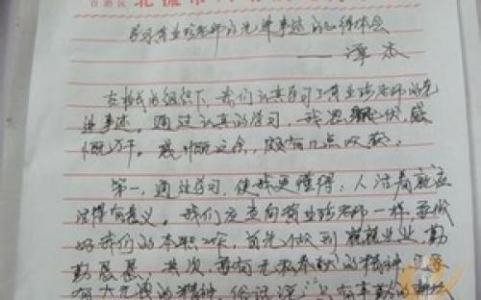 自治区北流市
学习黄业珍老师的先进事迹的心得体会
——谭杰
在校长的组织下，我们认真学习了黄业珍老师的先
进事迹。通过认真的学习，我思潮起伏，感
慨万千。感慨之余，颇有几点收获：
第一，通过学习，使我更懂得：人活着就应
活得有意义。我们应走向黄业珍老师一样，要做
好我们的本职工作，首先做到兢兢业业，勤
勤恳恳，其次，要有无私奉献的精神，
的精神，俗话说：